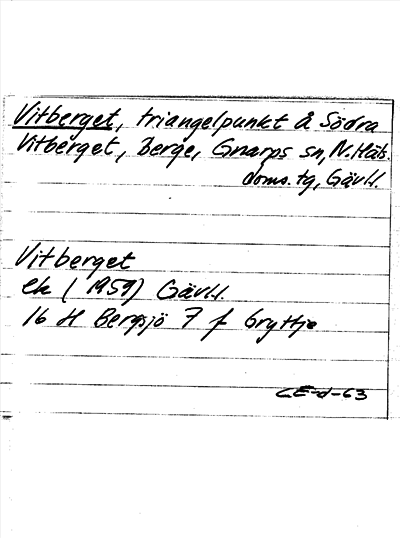 Vitberget, triangelpunkt å Södra
Vitberget, Berge, Gnarps sn, N. Häls.
doms. tg, Gävl l.
Vitberget
ek (1959) Gävl l.
16 H Bergsjö 7 f Gryttje
CE-d-63